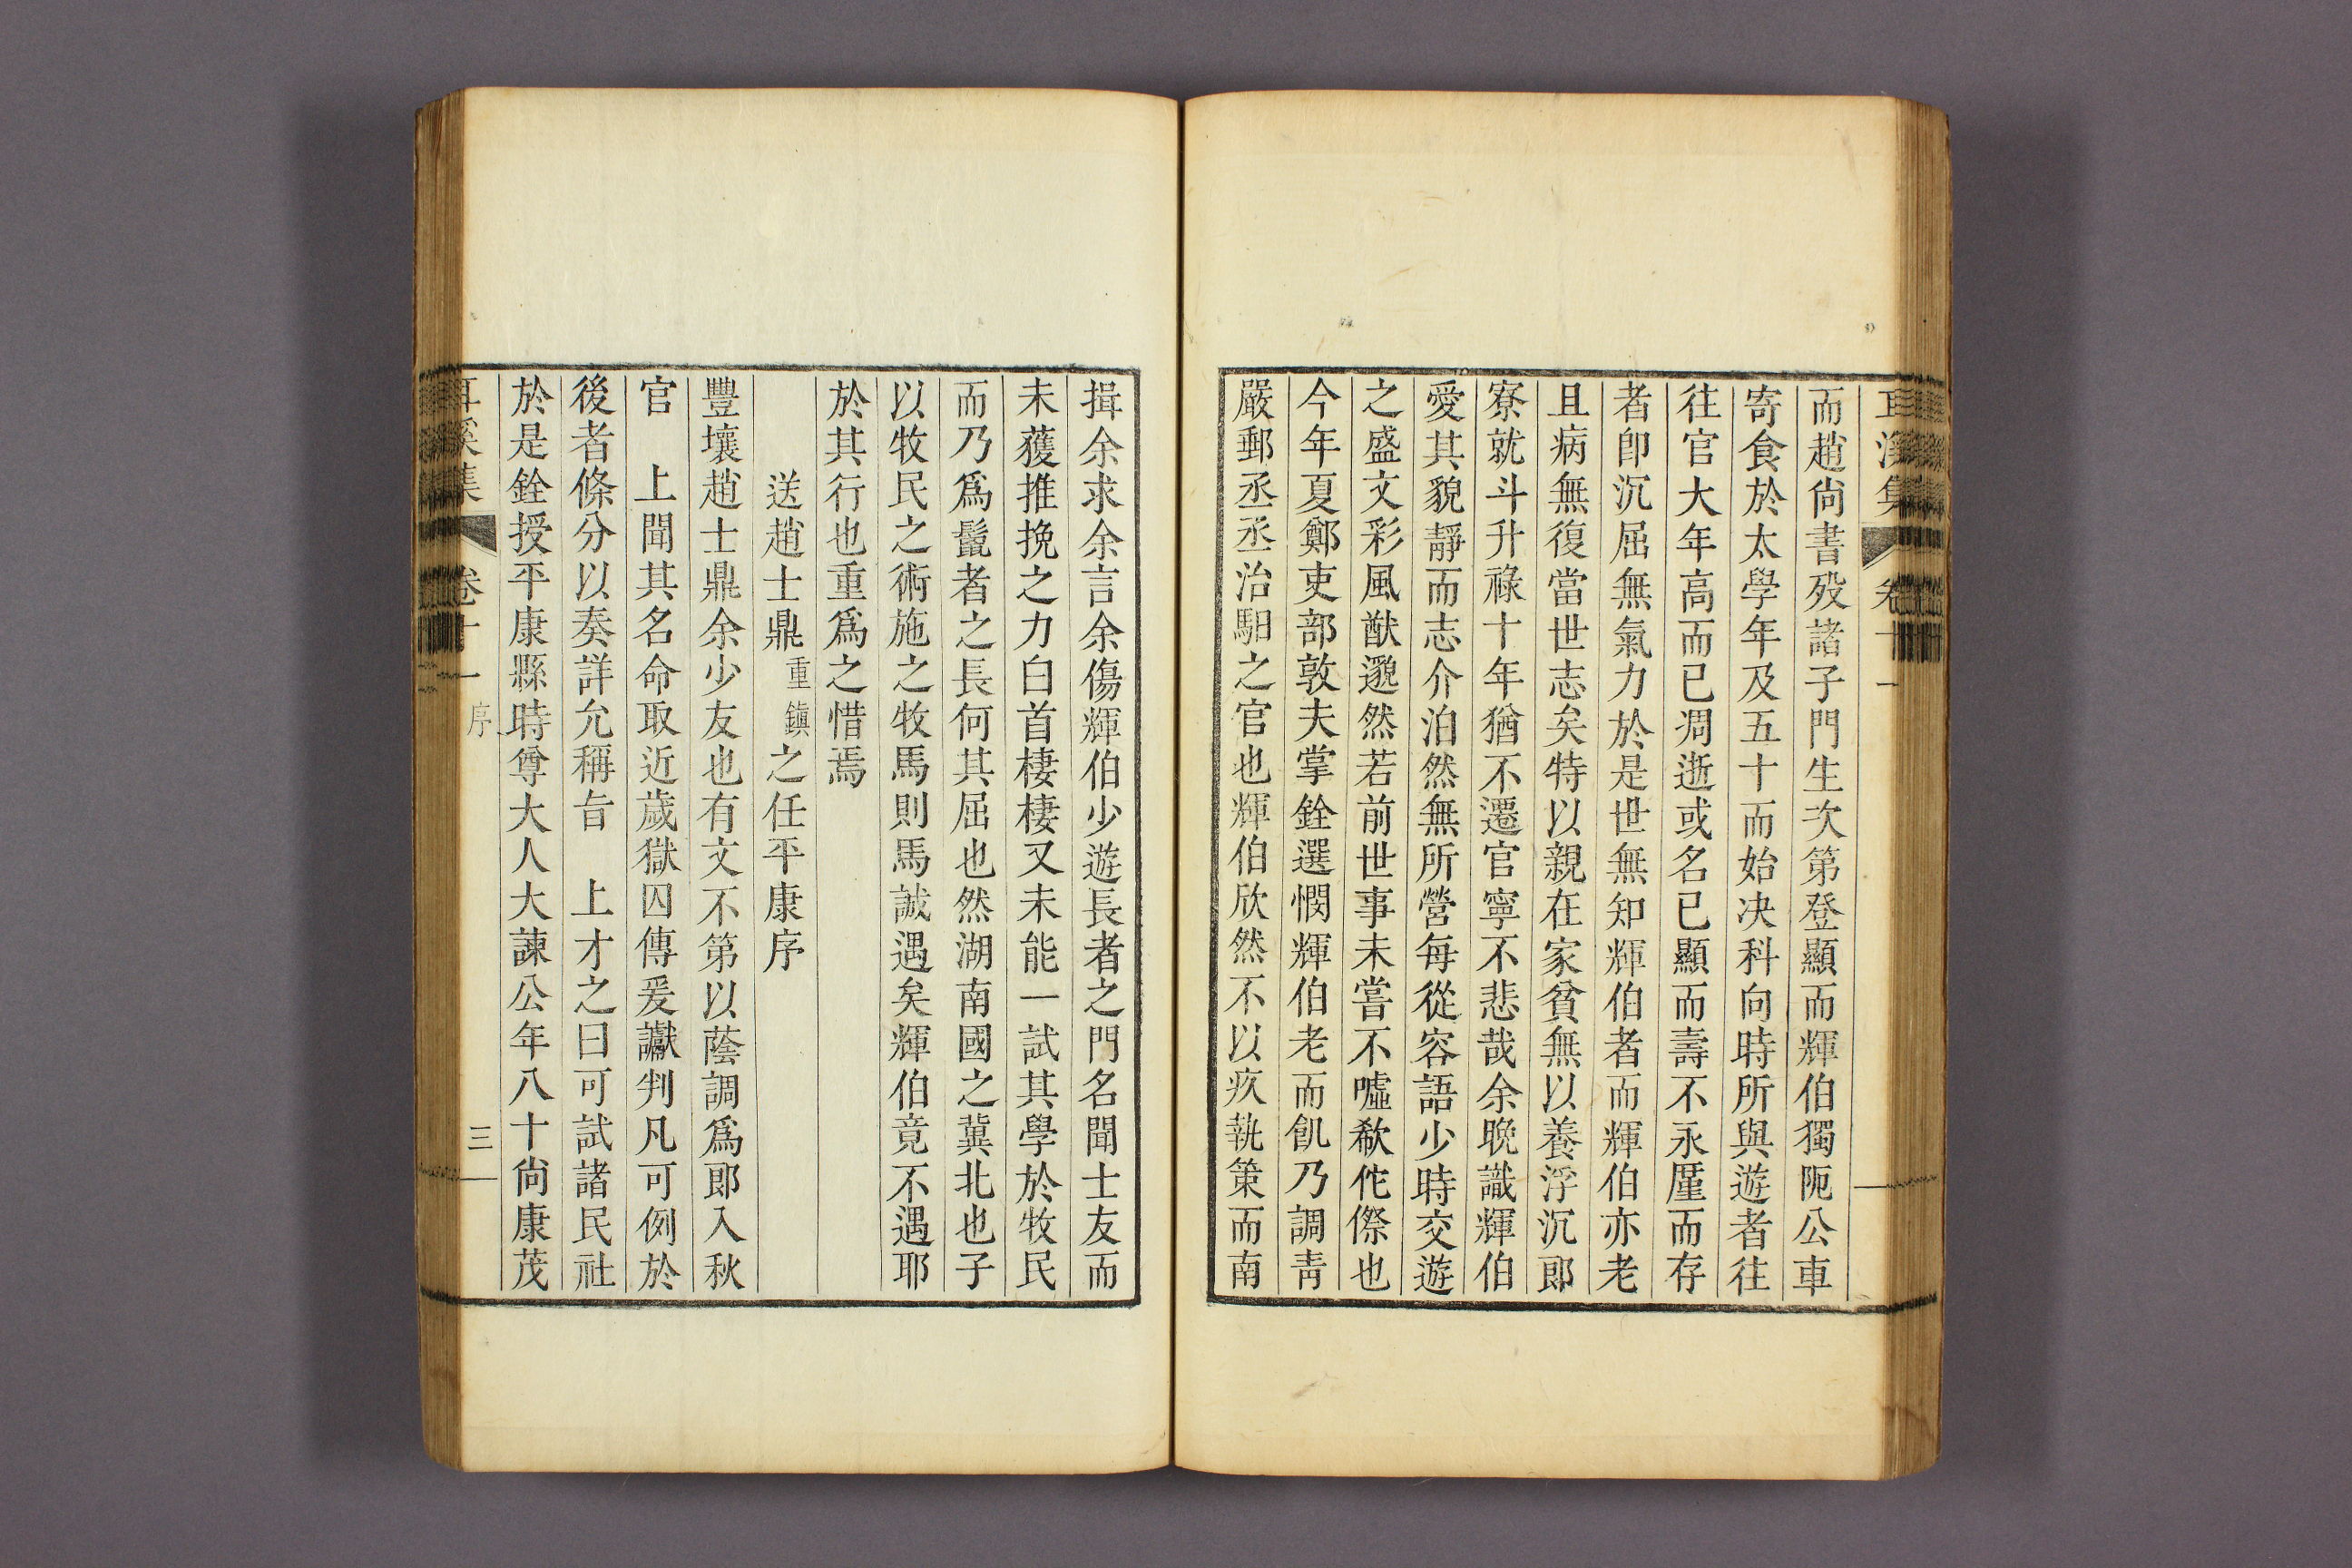 而趙尙書歿諸子門生次第登顯而輝伯獨阨公車
寄食於太學年及五十而始决科向時所與遊者往
往官大年高而已凋逝或名已顯而壽不永厪而存
者卽沉屈無氣力於是世無知輝伯者而輝伯亦老
且病無復當世志矣特以親在家貧無以養浮沉郞
寮就斗升祿十年猶不遷官寧不悲哉余晩識輝伯
愛其貌靜而志介泊然無所營每從容語少時交遊
之盛文彩風猷邈然若前世事未嘗不噓欷侘傺也
今年夏鄭吏部敦夫掌銓選憫輝伯老而飢乃調靑
嚴郵丞丞治馹之官也輝伯欣然不以疚執策而南
揖余求余言余傷輝伯少遊長者之門名聞士友而
未獲推挽之力白首棲棲又未能一試其學於牧民
而乃爲鬣者之長何其屈也然湖南國之冀北也子
以牧民之術施之牧馬則馬誠遇矣輝伯竟不遇耶
於其行也重爲之惜焉
送趙士鼎重鎭之任平康序
豐壤趙士鼎余少友也有文不第以蔭調爲郞入秋
官　上聞其名命取近歲獄囚傳爰讞判凡可例於
後者條分以奏詳允稱旨　上才之曰可試諸民社
於是銓授平康縣時尊大人大諫公年八十尙康茂
耳溪集　卷十一　序　三